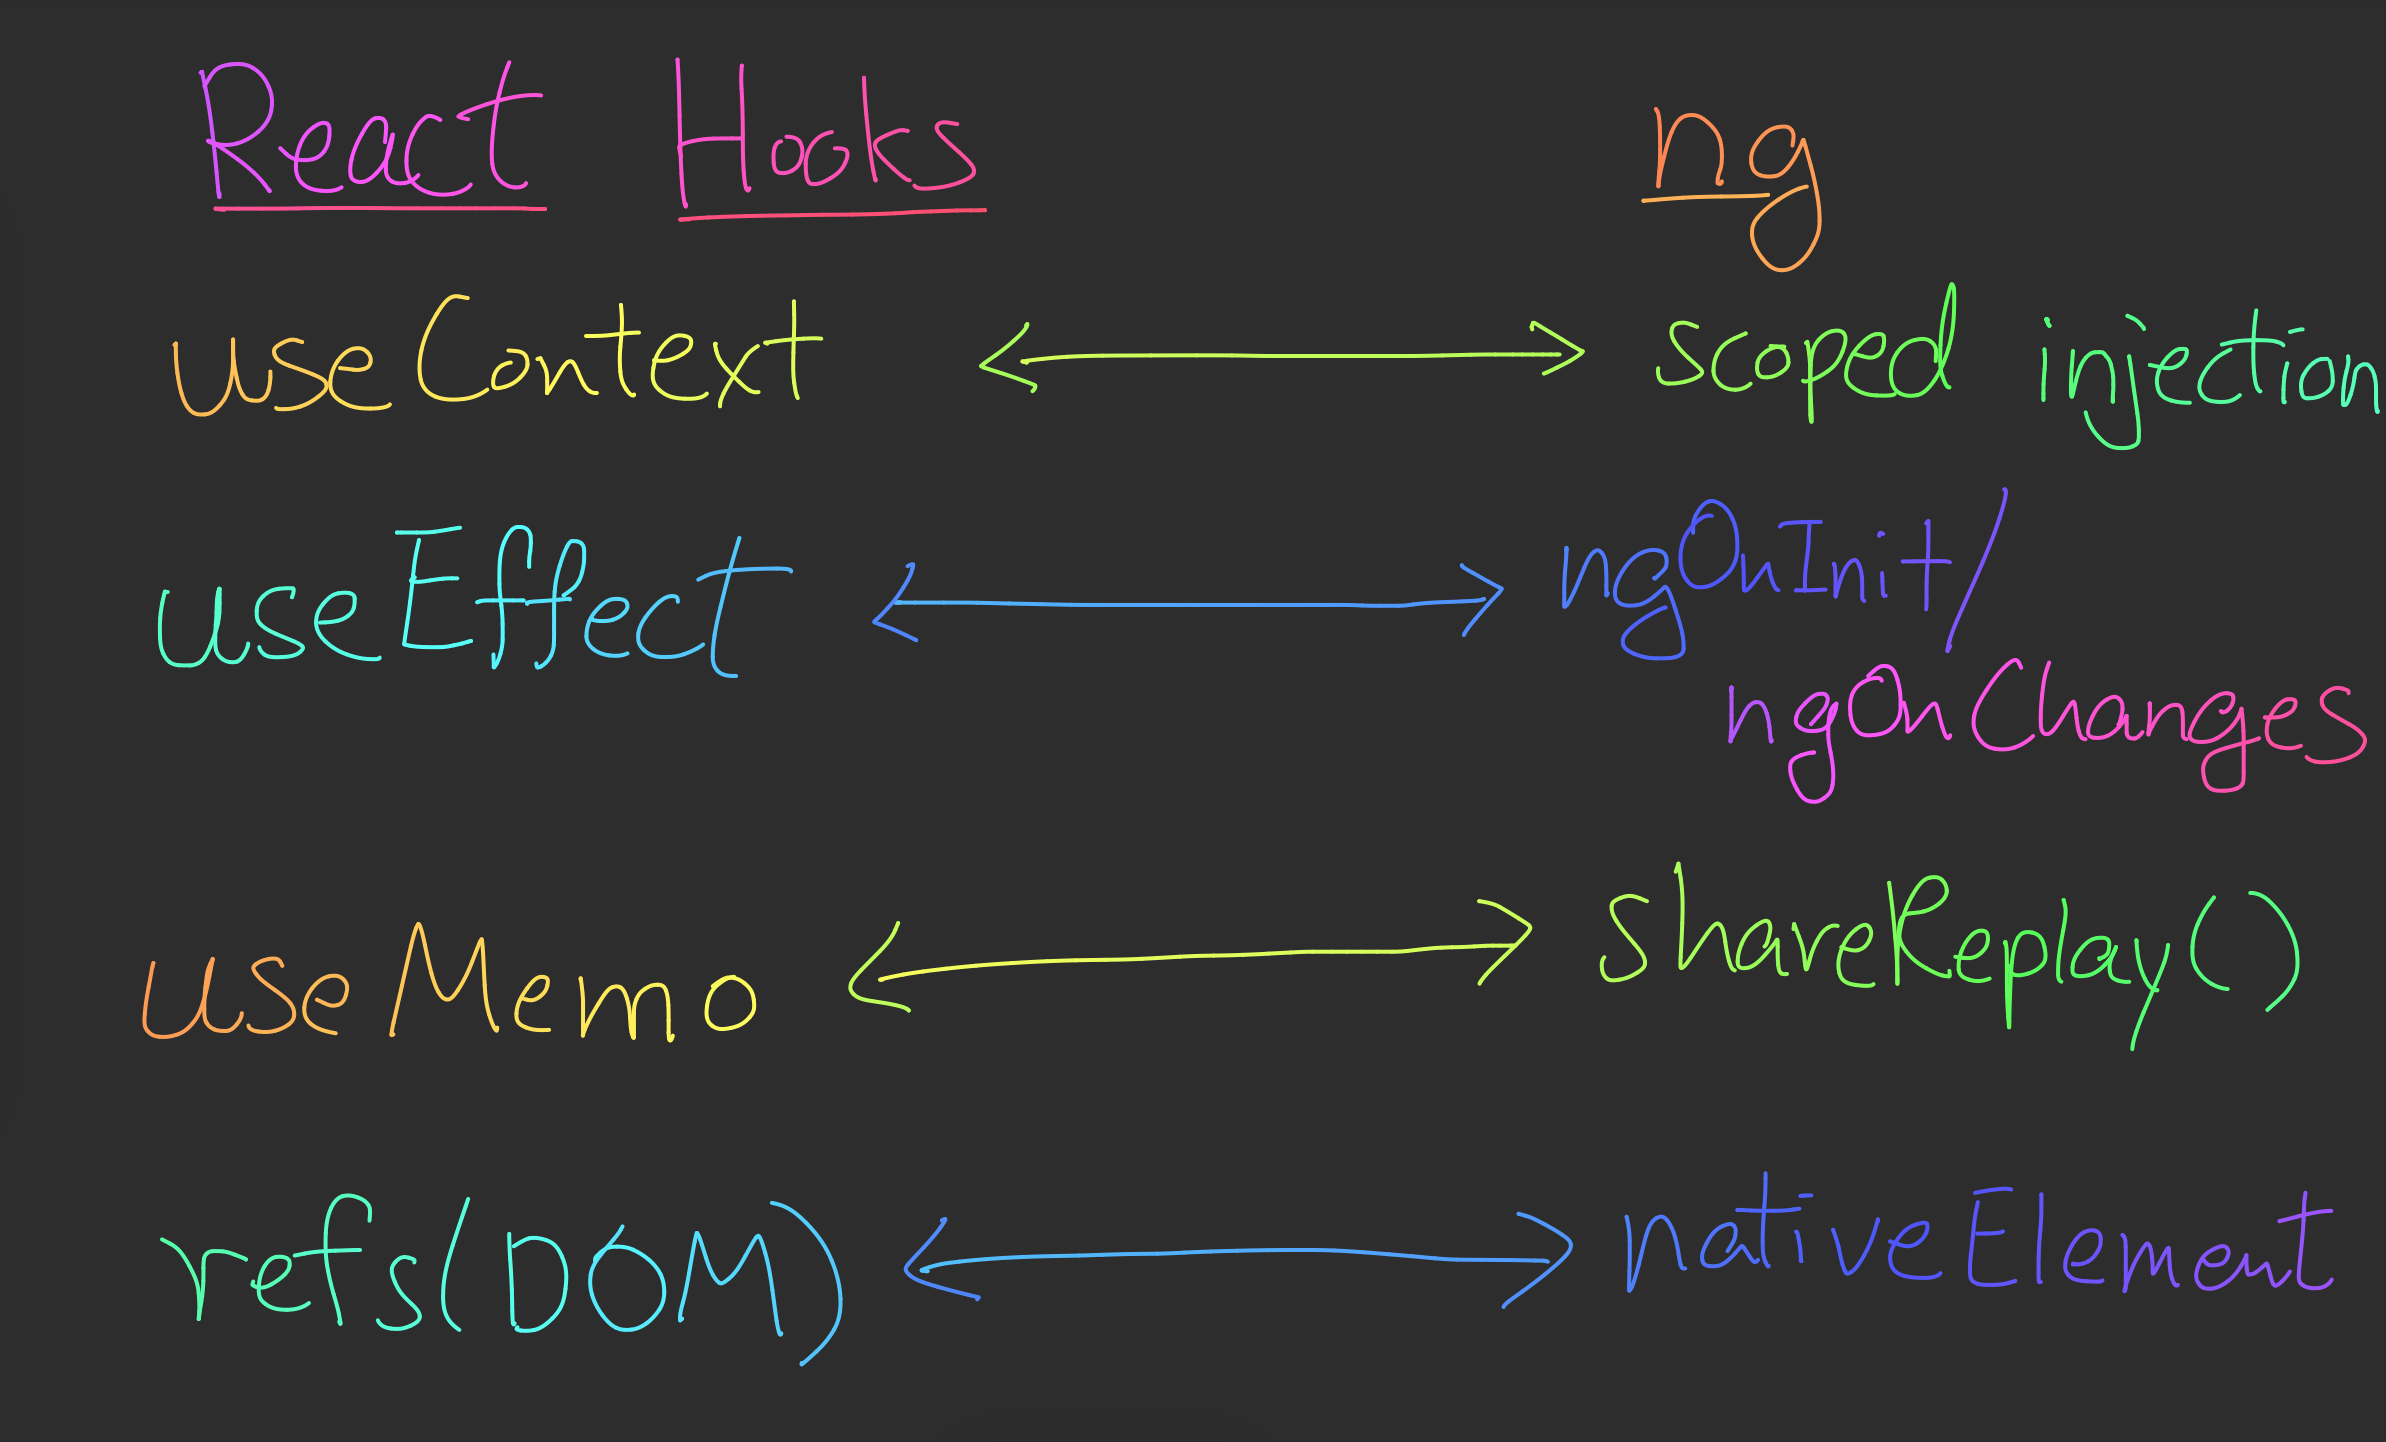 React Hooks ng
useContext scoped injection
useEffect ngOnInit/
ngOnChanges
useMemo shareReplay()
refs(DOM) nativeElement